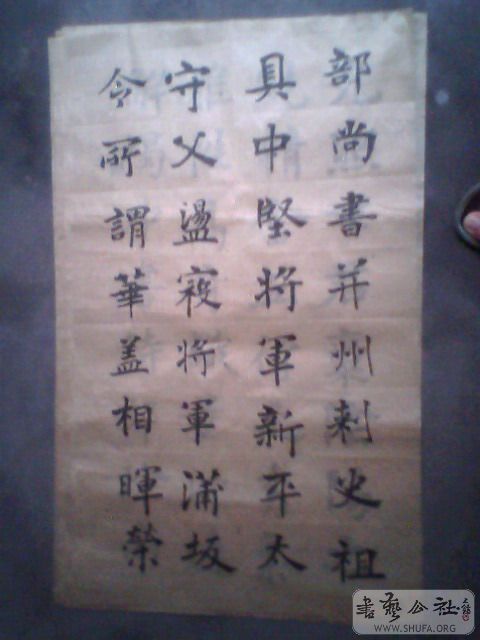 部尚書并州刺史祖
具中堅将軍新平太
守父盪寇将軍蒲坂
令所謂華盖相暉榮
書藝公社
WWW.SHUFA.ORG